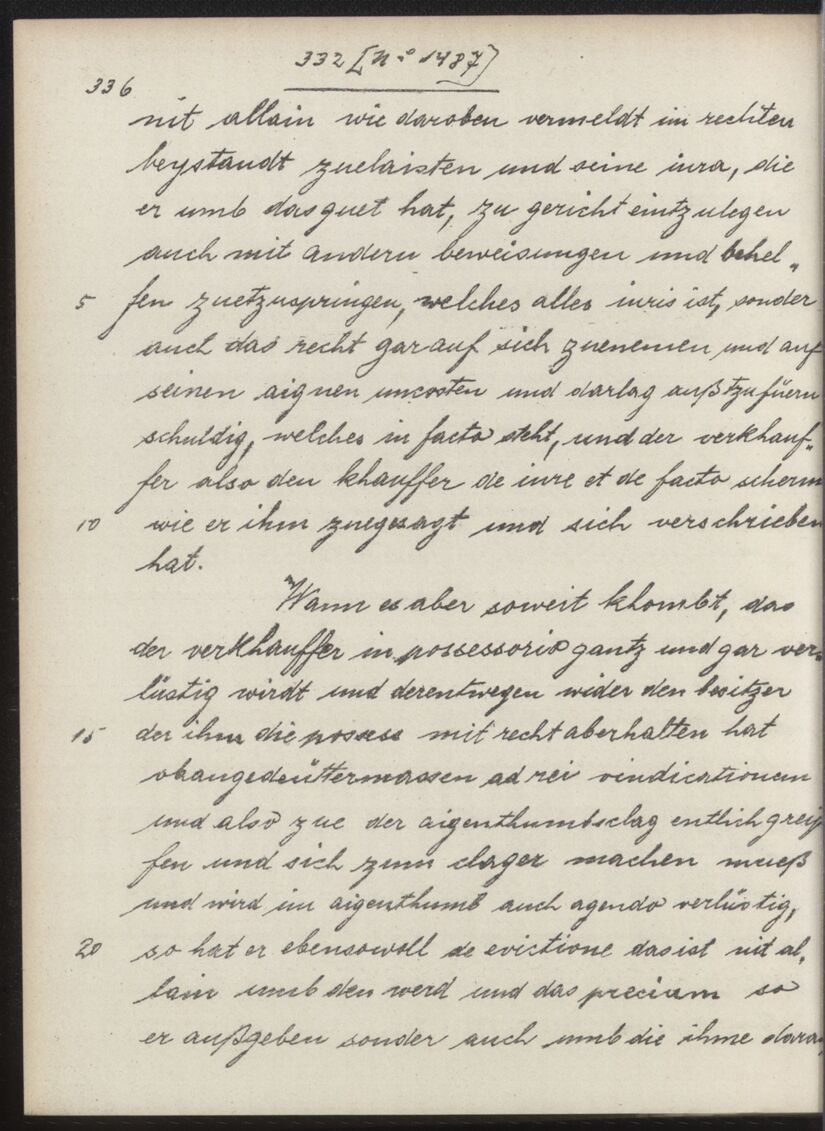 332 [No 1487]
336
nit allain wie daroben vermeldt im rechten
beystandt zuelaisten und seine iura, die
er umb das guet hat, zu gericht eintzulegen
auch mit andern beweisungen und behel„
5 fen zuetzuspringen, welches alles iuris ist, sonder
auch das recht gar auf sich zuenemen und auf
seinen aignen uncosten und darlag außtzufüern
schuldig, welches in facto steht, und der verkhauf„
fer also den khauffer de iure et de facto scherm
10 wie er ihm zuegesagt und sich verschrieben
hat.
Wann es aber soweit khombt, das
der verkhauffer in possessorio gantz und gar ver„
lüstig wirdt und derentwegen wider den besitzer
15 der ihm die possess mit recht aberhalten hat
obangedeüttermassen ad rei vindicationem
und also zue der aigenthumbsclag entlich greif
fen und sich zum clager machen mueß
und wird im aigenthumb auch agendo verlüstig,
20 so hat er ebensowoll de evictione das ist nit al„
lain umb den werd und das precium so
er außgeben sonder auch umb die ihme dara